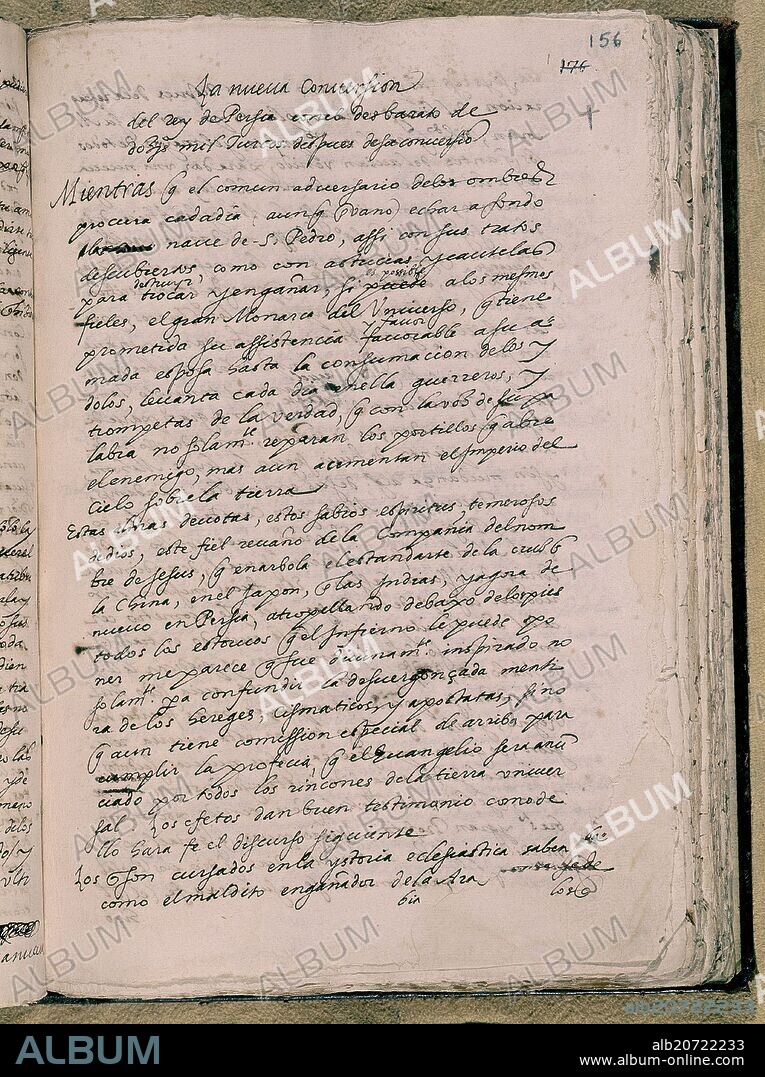 156
176
La nueva Conversion
del rey de Persia como desbarato de
mil Turcos despues de sa conversio
Mientras q̃ el comun adversario delos ombres
procura cadadia, aunq̃ (vano) echar a fondo
nave de S. Pedro, assi con sus tratos
descubiertos, como con astucias y cautelas
destruyr, es possible
para trocar y engañar, si puede alos mesmos
fieles, el gran Monarca del Vniverso, q̃ tiene
favor
prometida su assistencia y favorable a su a-
mada esposa hasta la consumacion delos y
dolos, levanta cada dia nella guerreros, y
trompetas de la verdad, q̃ con la vob de su pa
labra no solamte reparan los portillos q̃ abre
el enemigo, mas aun acimentan el Imperio del
Cielo sobre la tierra
Estas obras devotas, estos sabios espiritus, temerosos
dedios, este fiel recano de la Compañia del nom
bre de Jesus, q̃ enarbola el estandarte de la crus
la China, en el Japon, las Indias, y agora de
nuevo en Persia, atropellando debaxo de los pies
todos los estorvos q̃ el Infierno le puede opo
ner me parece q̃ fue divinamte inspirado no
solamte pa confundir la desvergonçada menti
ra de los hereges, cismaticos, y apostatas, sino
q̃ aun tiene comission especial de arriba para
cumplir la profecia, q̃ el Evangelio sera anũ
ciado por todos los rincones de la tierra vniver
sal. Los efetos dan buen testimonio como de
llo hara fe el discurso siguiente
Los q̃ son cursados en la ystoria eclesiastica saben
como el maldito engañador de la Ara
bia
los q̃
ALBUM
alb20722233
www.album-online.com